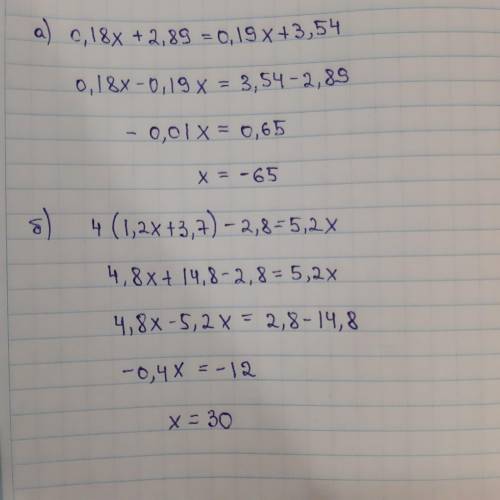 а) 0,18x + 2,89 = 0,19x + 3,54
0,18x - 0,19x = 3,54 - 2,89
- 0,01x = 0,65
x = -65
б) 4(1,2x + 3,7) - 2,8 = 5,2x
4,8x + 14,8 - 2,8 = 5,2x
4,8x - 5,2x = 2,8 - 14,8
-0,4x = -12
x = 30